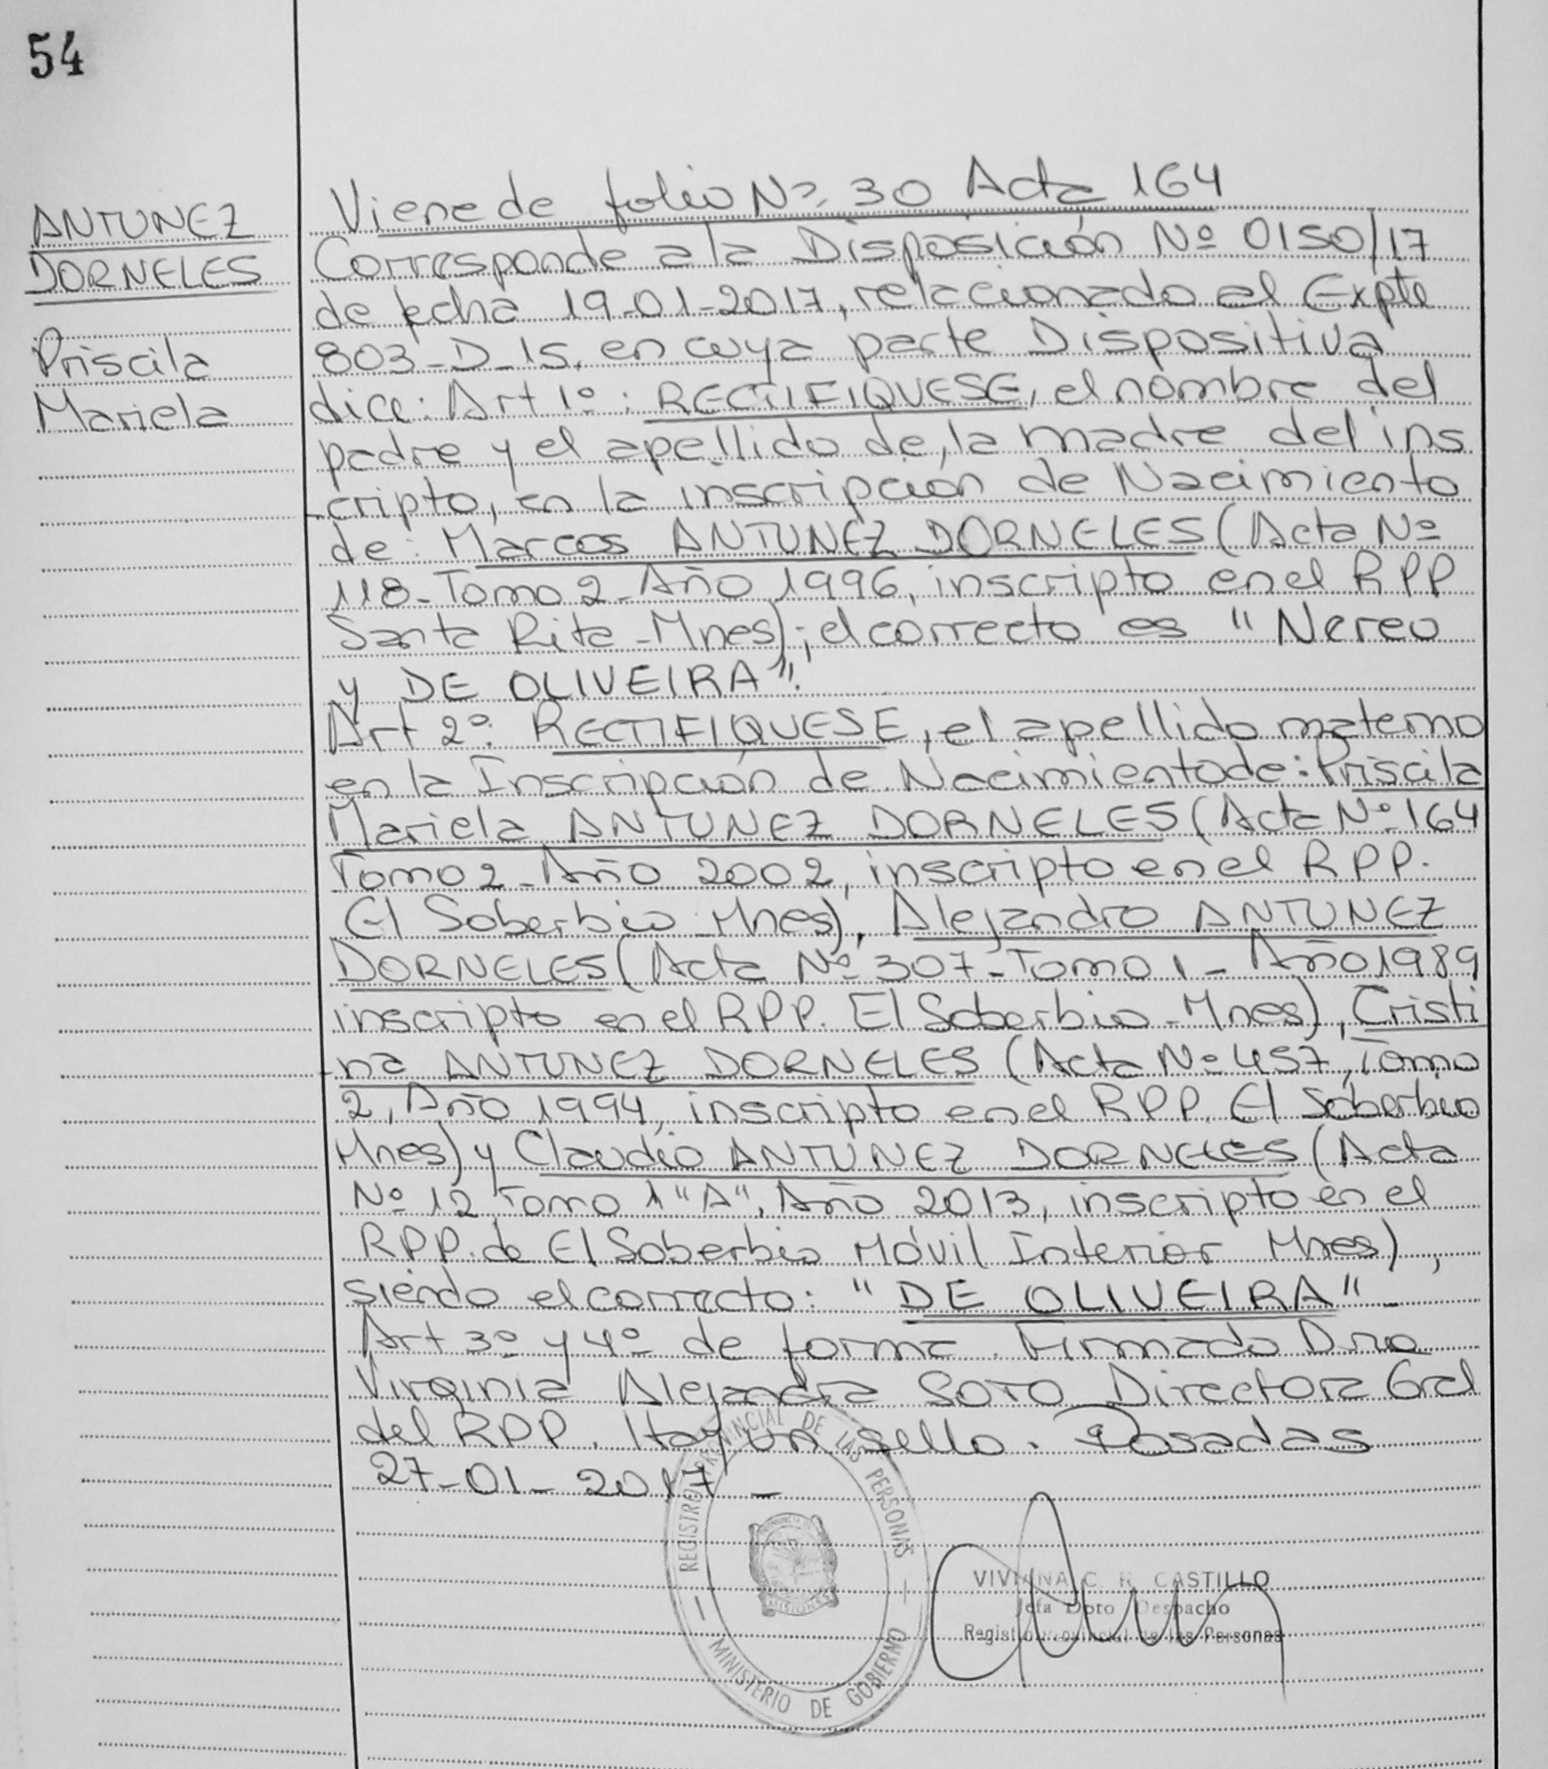 54
ANTUNEZ
DORNELES
Priscila
Mariela
Viene de folio Nº 30 Acta 164
Corresponde a la Disposición Nº 0150/17
de fecha 19-01-2017, relacionado al Expte
803-D-15, en cuya parte Dispositiva
dice: Art 1º: RECTIFIQUESE, el nombre del
padre y el apellido de la madre del ins
-cripto, en la inscripción de Nacimiento
de: Marcos ANTUNEZ DORNELES (Acta Nº
118-Tomo 2-Año 1996, inscripto en el RPP
Santa Rita-Mnes); el correcto es "Nereo
y DE OLIVEIRA".
Art 2º: RECTIFIQUESE, el apellido materno
en la Inscripción de Nacimiento de: Priscila
Mariela ANTUNEZ DORNELES (Acta Nº 164
Tomo 2-Año 2002, inscripto en el RPP.
El Soberbio-Mnes), Alejandro ANTUNEZ
DORNELES (Acta Nº 307-Tomo 1-Año 1989
inscripto en el RPP. El Soberbio-Mnes), Cristi
-na ANTUNEZ DORNELES (Acta Nº 457, Tomo
2, Año 1994, inscripto en el RPP. El Soberbio
Mnes) y Claudio ANTUNEZ DORNELES (Acta
Nº 12 Tomo 1 "A", Año 2013, inscripto en el
RPP. de El Soberbio Móvil Interior Mnes),
siendo el correcto: "DE OLIVEIRA"-
Art 3º y 4º de forma. Firmado Dra
Virginia Alejandra SOTO Directora Gral
del RPP. Hay un sello. Posadas
27-01-2017-
REGISTRO PROVINCIAL DE LAS PERSONAS
MISIONES
MINISTERIO DE GOBIERNO
VIVIANA C. R. CASTILLO
Jefa Dpto Despacho
Registro Provincial de las Personas